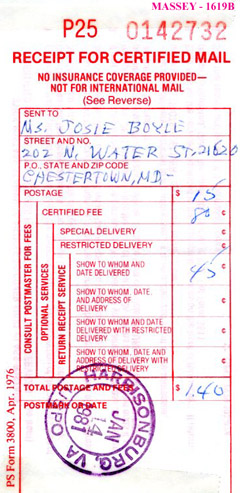 MASSEY - 1619B
P25 0142732
RECEIPT FOR CERTIFIED MAIL
NO INSURANCE COVERAGE PROVIDED—
NOT FOR INTERNATIONAL MAIL
(See Reverse)
SENT TO
Ms. JOSIE BOYLE
STREET AND NO.
202 N. WATER ST. 21620
P.O., STATE AND ZIP CODE
CHESTERTOWN, MD-
POSTAGE $ 15
CONSULT POSTMASTER FOR FEES
OPTIONAL SERVICES
RETURN RECEIPT SERVICE
CERTIFIED FEE 80 ¢
SPECIAL DELIVERY ¢
RESTRICTED DELIVERY ¢
SHOW TO WHOM AND
DATE DELIVERED 45 ¢
SHOW TO WHOM, DATE,
AND ADDRESS OF
DELIVERY ¢
SHOW TO WHOM AND DATE
DELIVERED WITH RESTRICTED
DELIVERY ¢
SHOW TO WHOM, DATE AND
ADDRESS OF DELIVERY WITH
RESTRICTED DELIVERY ¢
TOTAL POSTAGE AND FEES $ 1.40
POSTMARK OR DATE
HARRISONBURG, VA
JAN
14
1981
USPO
PS Form 3800, Apr. 1976